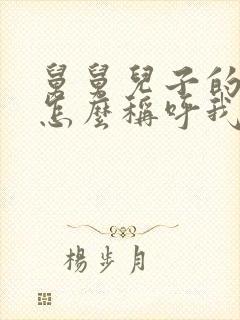 舅舅兒子的
怎麼稱呼我
楊步月